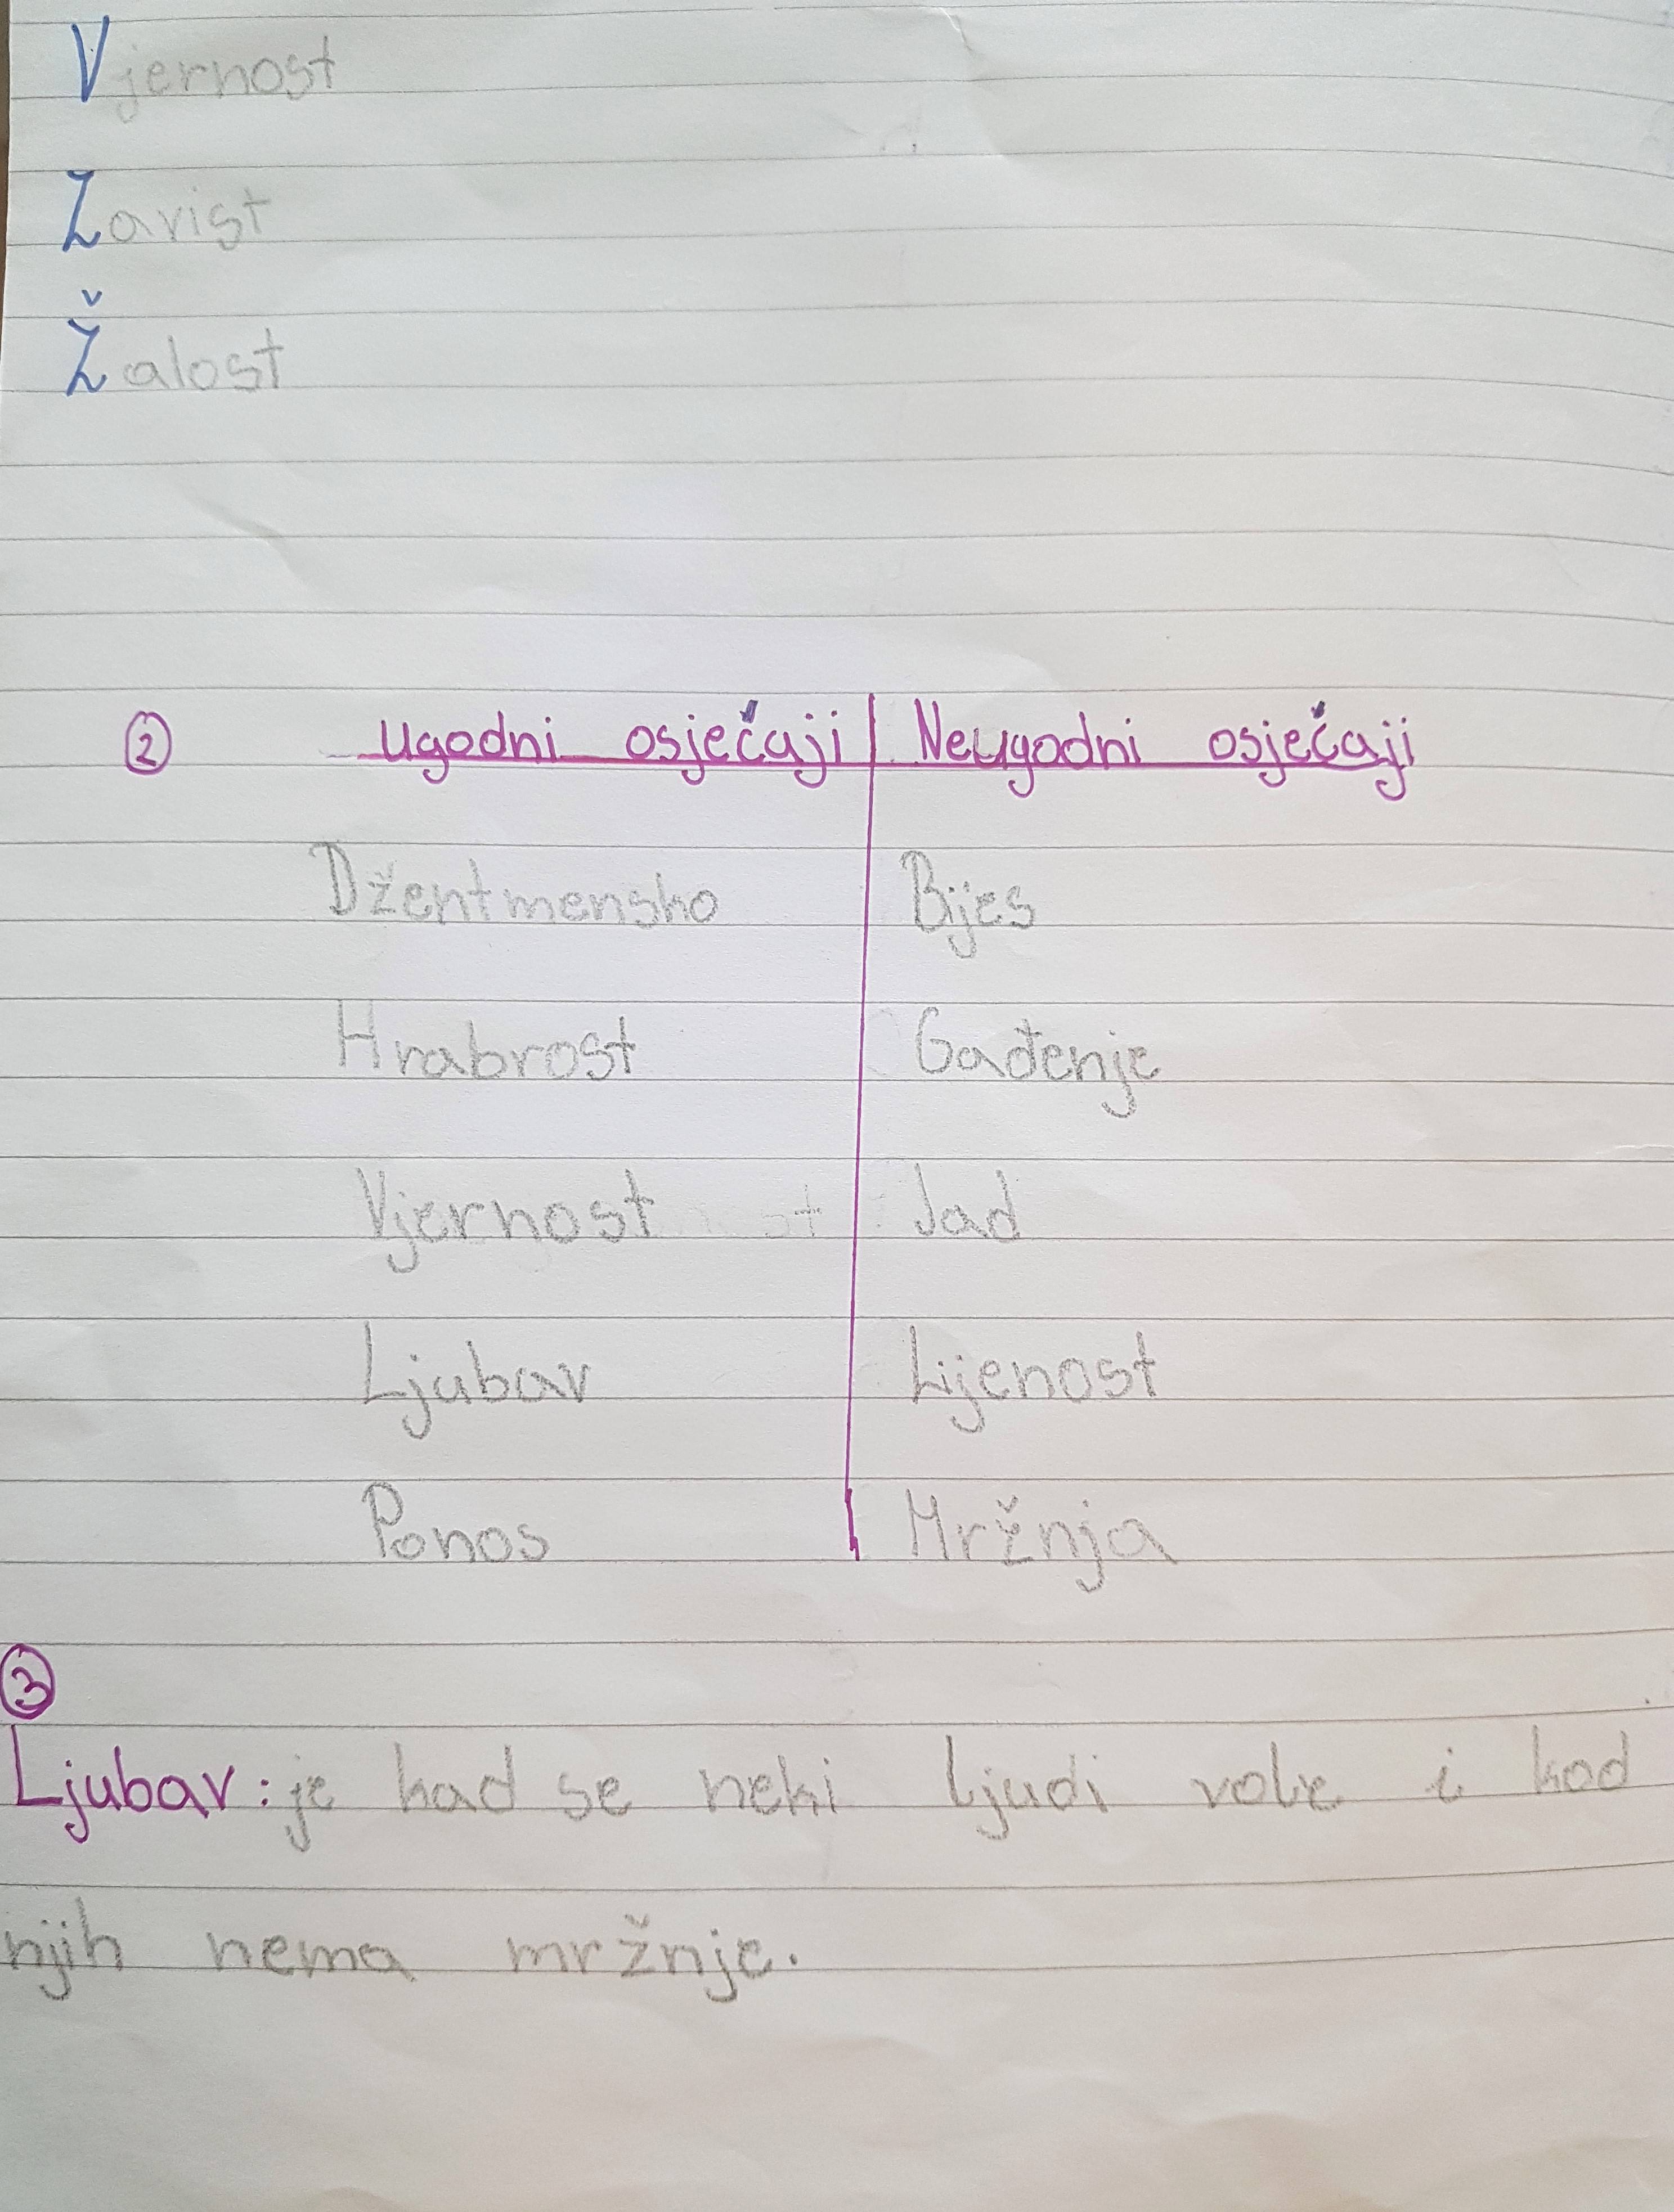 Vjernost
Zavist
Žalost
② Ugodni osjećaji | Neugodni osjećaji
Džentmensko Bijes
Hrabrost Gađenje
Vjernost Jad
Ljubav Lijenost
Ponos Mržnja
③
Ljubav: je kad se neki ljudi vole i kod
njih nema mržnje.